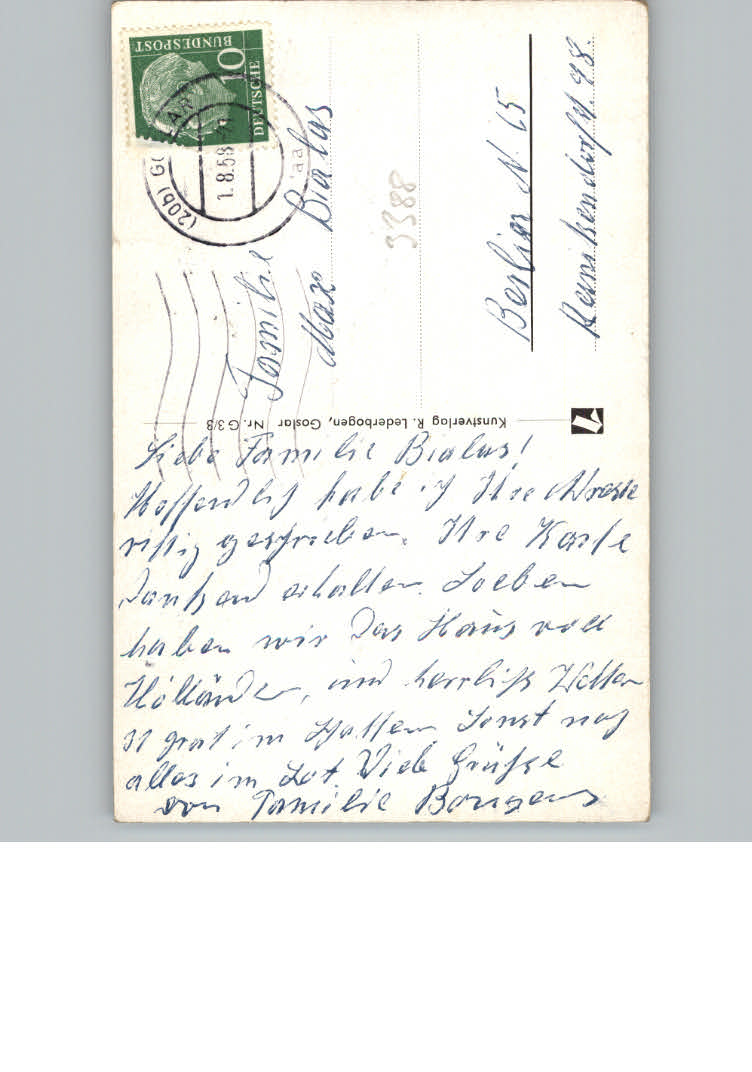 DEUTSCHE
BUNDESPOST
10
(20b) GOSLAR
1.8.58
Familie
Max Bialas
3388
Berlin N. 65
Reinikendorfst. 98.
Kunstverlag R. Lederbogen, Goslar Nr. G 3/3
Liebe Familie Bialas!
Hoffendlich habe ich Ihre Adresse
richtig geschrieben. Ihre Karte
dankend erhalten. Soeben
haben wir das Haus voll
Holländer, und herrlichs Wetter
31 grat im Schatten. Sonst noch
alles im Lot. Viele Grüsse
von Familie